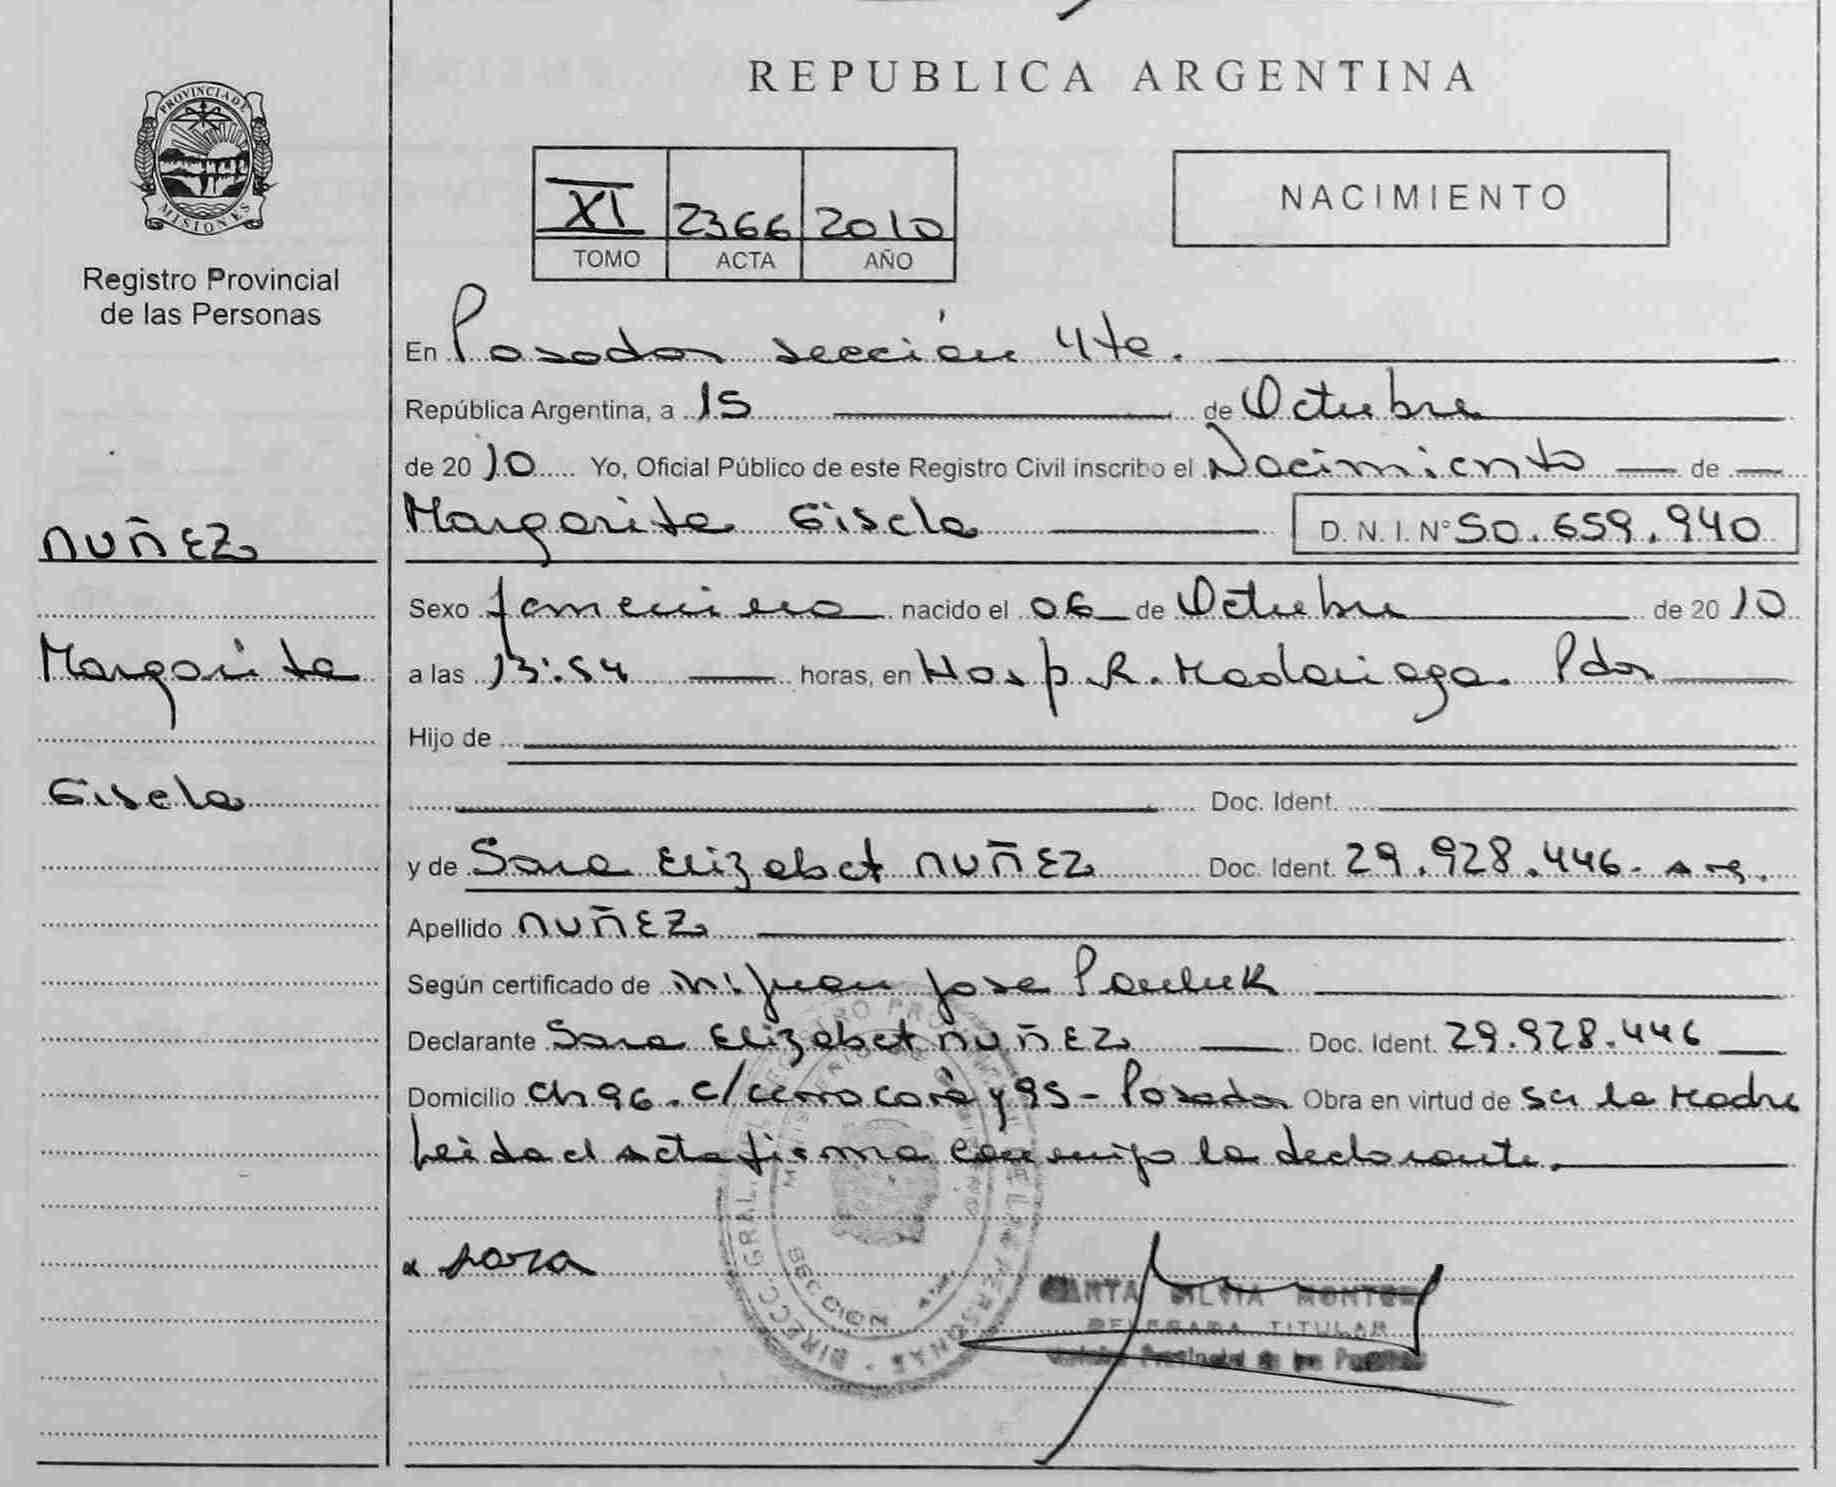 PROVINCIA DE
MISIONES
Registro Provincial
de las Personas
NUÑEZ
Margarita
Gisela
REPUBLICA ARGENTINA
XI 2366 2010
TOMO ACTA AÑO
NACIMIENTO
En Posadas sección 4ta.
República Argentina, a 15 de Octubre
de 2010 Yo, Oficial Público de este Registro Civil inscribo el Nacimiento de
Margarita Gisela D. N. I. Nº 50.659.940
Sexo femenino nacido el 06 de Octubre de 2010
a las 13:54 horas, en Hosp. R. Madariaga. Pdas
Hijo de
Doc. Ident.
y de Sara Elizabet NUÑEZ Doc. Ident. 29.928.446. Arg.
Apellido NUÑEZ
Según certificado de Juan Jose Pauluk
Declarante Sara Elizabet NUÑEZ Doc. Ident. 29.928.446
Domicilio Ch 96. c/ cerro corá y 95 - Posadas Obra en virtud de ser la Madre
Leida el acta firma conmigo la declarante.
sara
SILVIA
DELEGADA TITULAR
DIRECC. GRAL. PERSONAS
SECCION